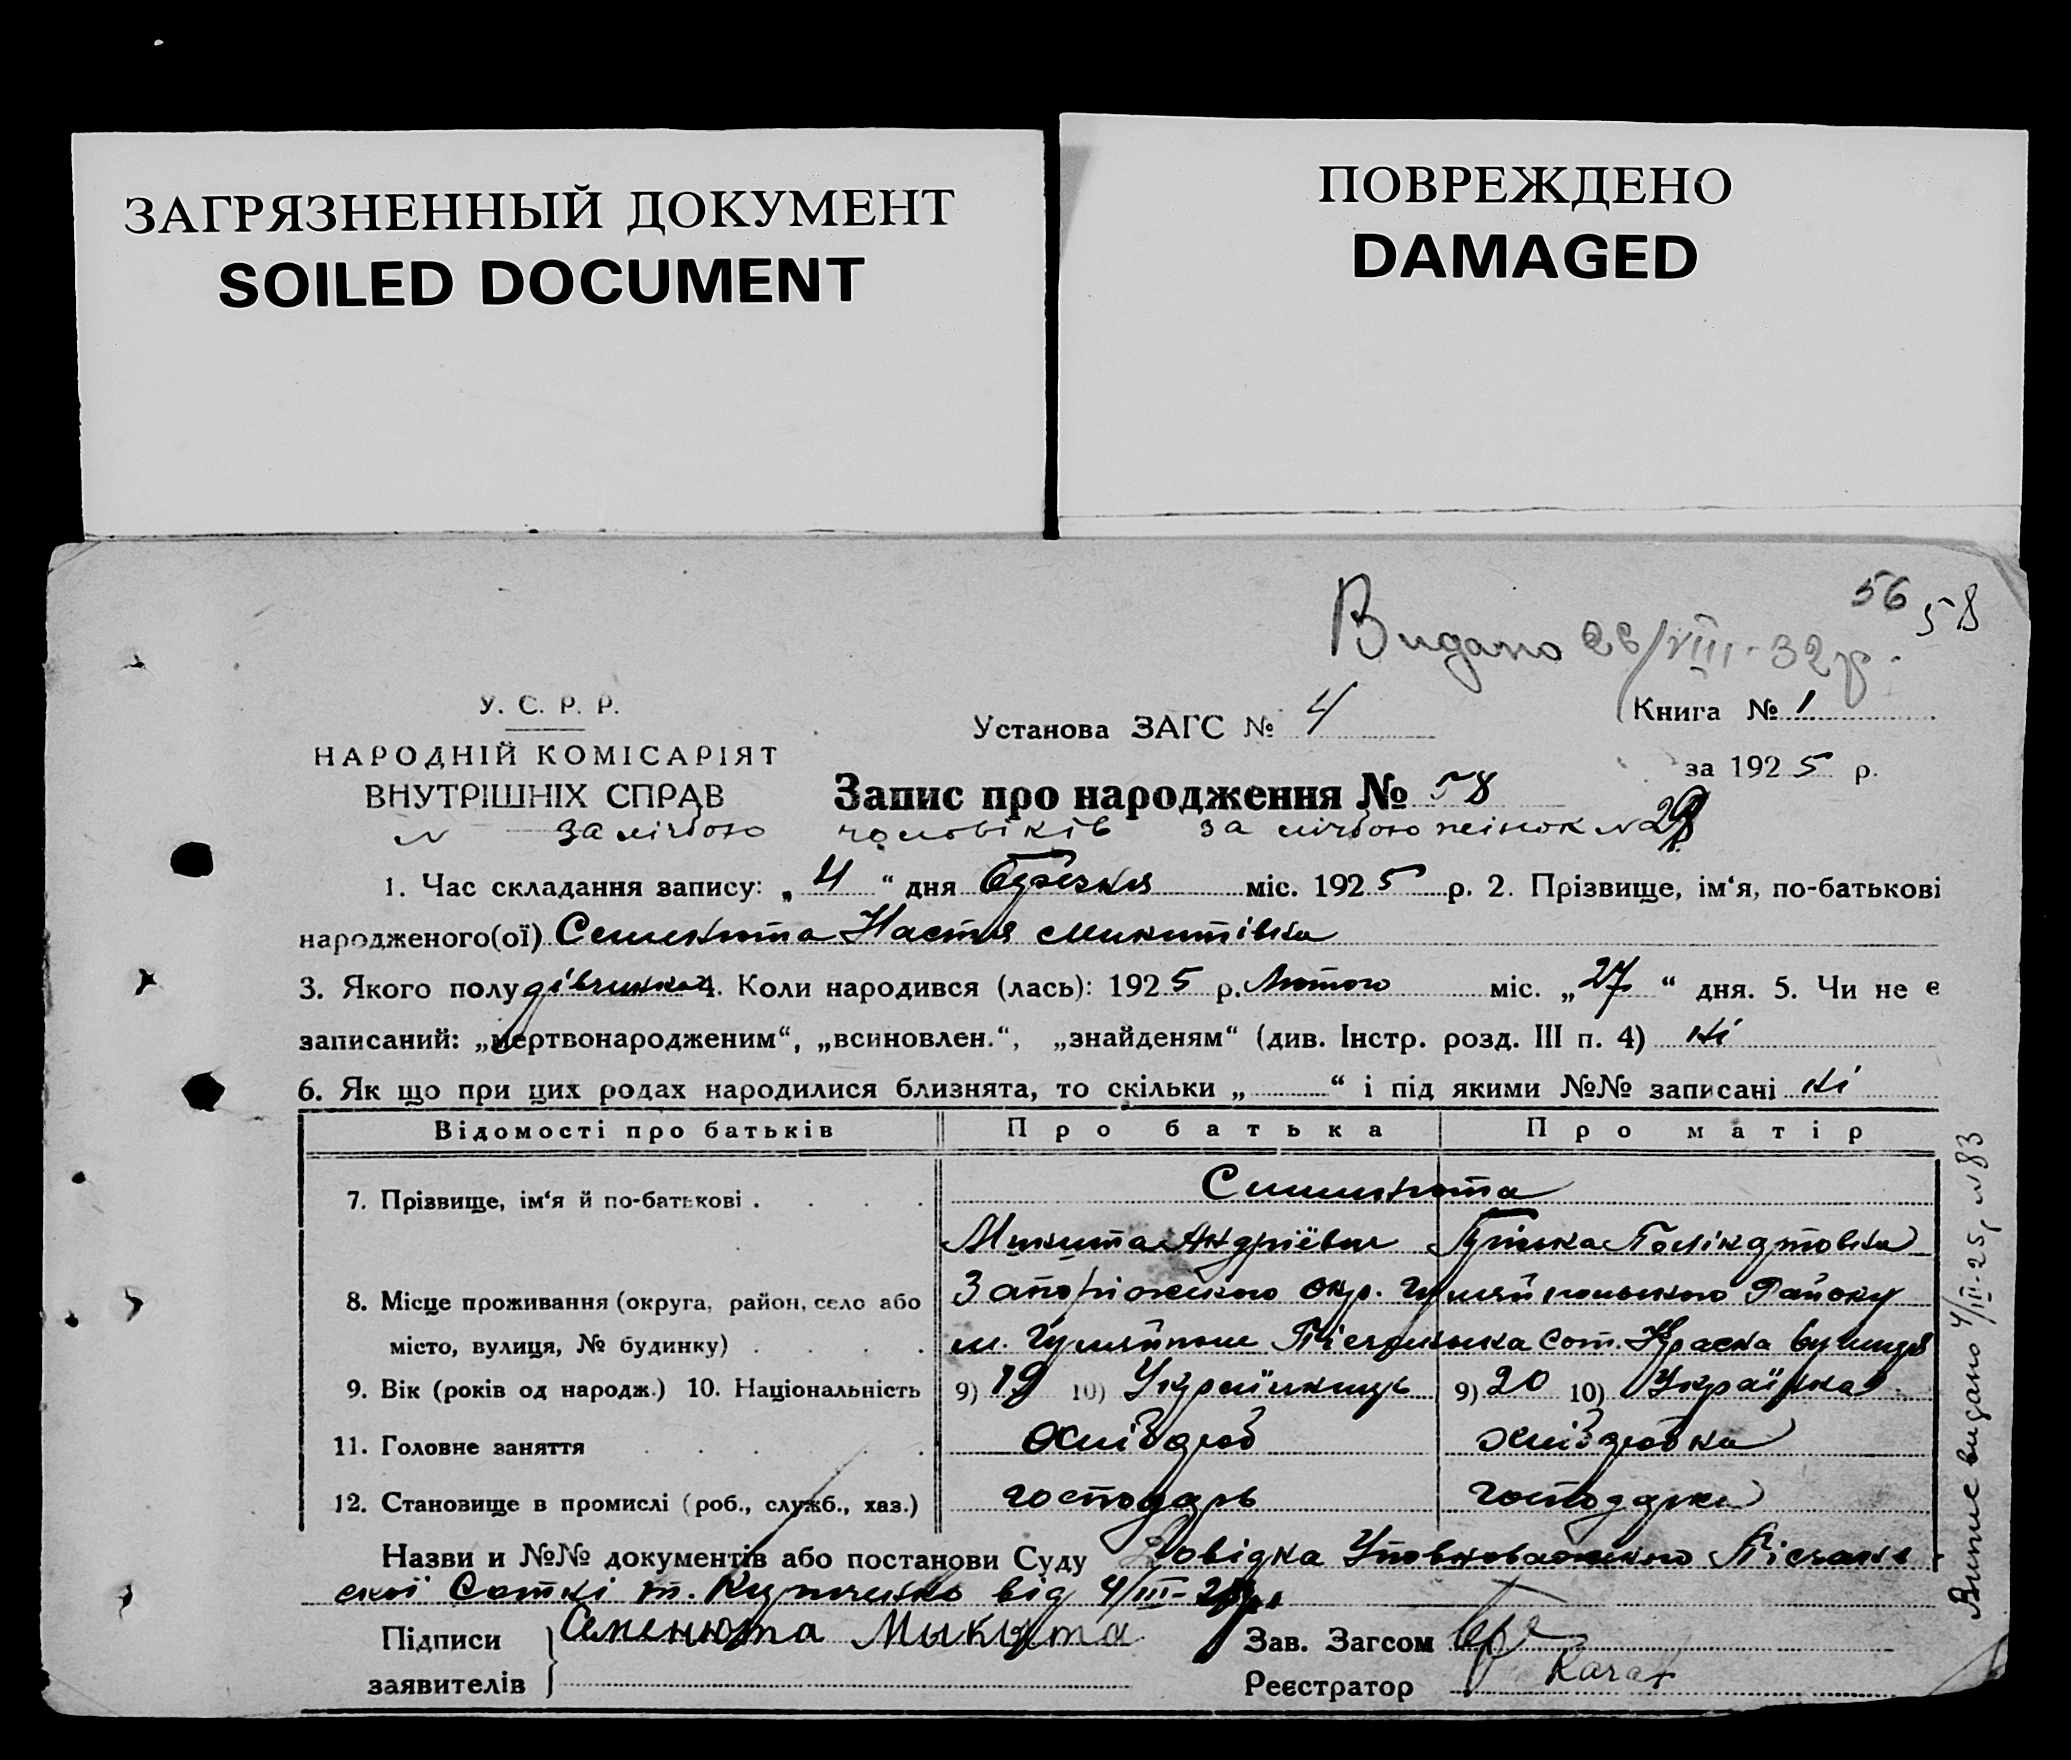 ЗАГРЯЗНЕННЫЙ ДОКУМЕНТ
SOILED DOCUMENT
ПОВРЕЖДЕНО
DAMAGED
56 58
Видано 26/VIII-32 р.
У. С. Р. Р.
НАРОДНІЙ КОМІСАРІЯТ
ВНУТРІШНІХ СПРАВ
Установа ЗАГС № 4
Книга № 1
за 1925 р.
Запис про народження № 58
№ за лічбою чоловіків за лічбою жінок №
1. Час складання запису: „4“ дня Березня міс. 1925 р. 2. Прізвище, ім‘я, по-батькові
народженого(ої) Семенюта Настя Микитівна
3. Якого полу дівчинка 4. Коли народився (лась): 1925 р. Лютого міс. „27“ дня. 5. Чи не є
записаний: „мертвонародженим“, „всиновлен.“, „знайденям“ (див. Інстр. розд. III п. 4) ні
6. Як що при цих родах народилися близнята, то скільки „ “ і під якими №№ записані ні
Відомості про батьків Про батька Про матір
7. Прізвище, ім‘я й по-батькові Семенюта
Микита Андрієвич
8. Місце проживання (округа, район, село або Запоріжського Окр. Гуляйпольського Району
місто, вулиця, № будинку) м. Гуляйполе сот. вулиця
9. Вік (років од народж.) 10. Національність 9) 19 10) Українець 9) 20 10) Українка
11. Головне заняття Хлібороб хліборобка
12. Становище в промислі (роб., служб., хаз.) господарь господарка
Назви и №№ документів або постанови Суду Довідка Уповноваженого Пісчанс
скої Сотні т. від 4/III-
Підписи Семенюта Мыкыта Зав. Загсом
заявителів Реєстратор
Витяг видано 4/III-25 р. № 83